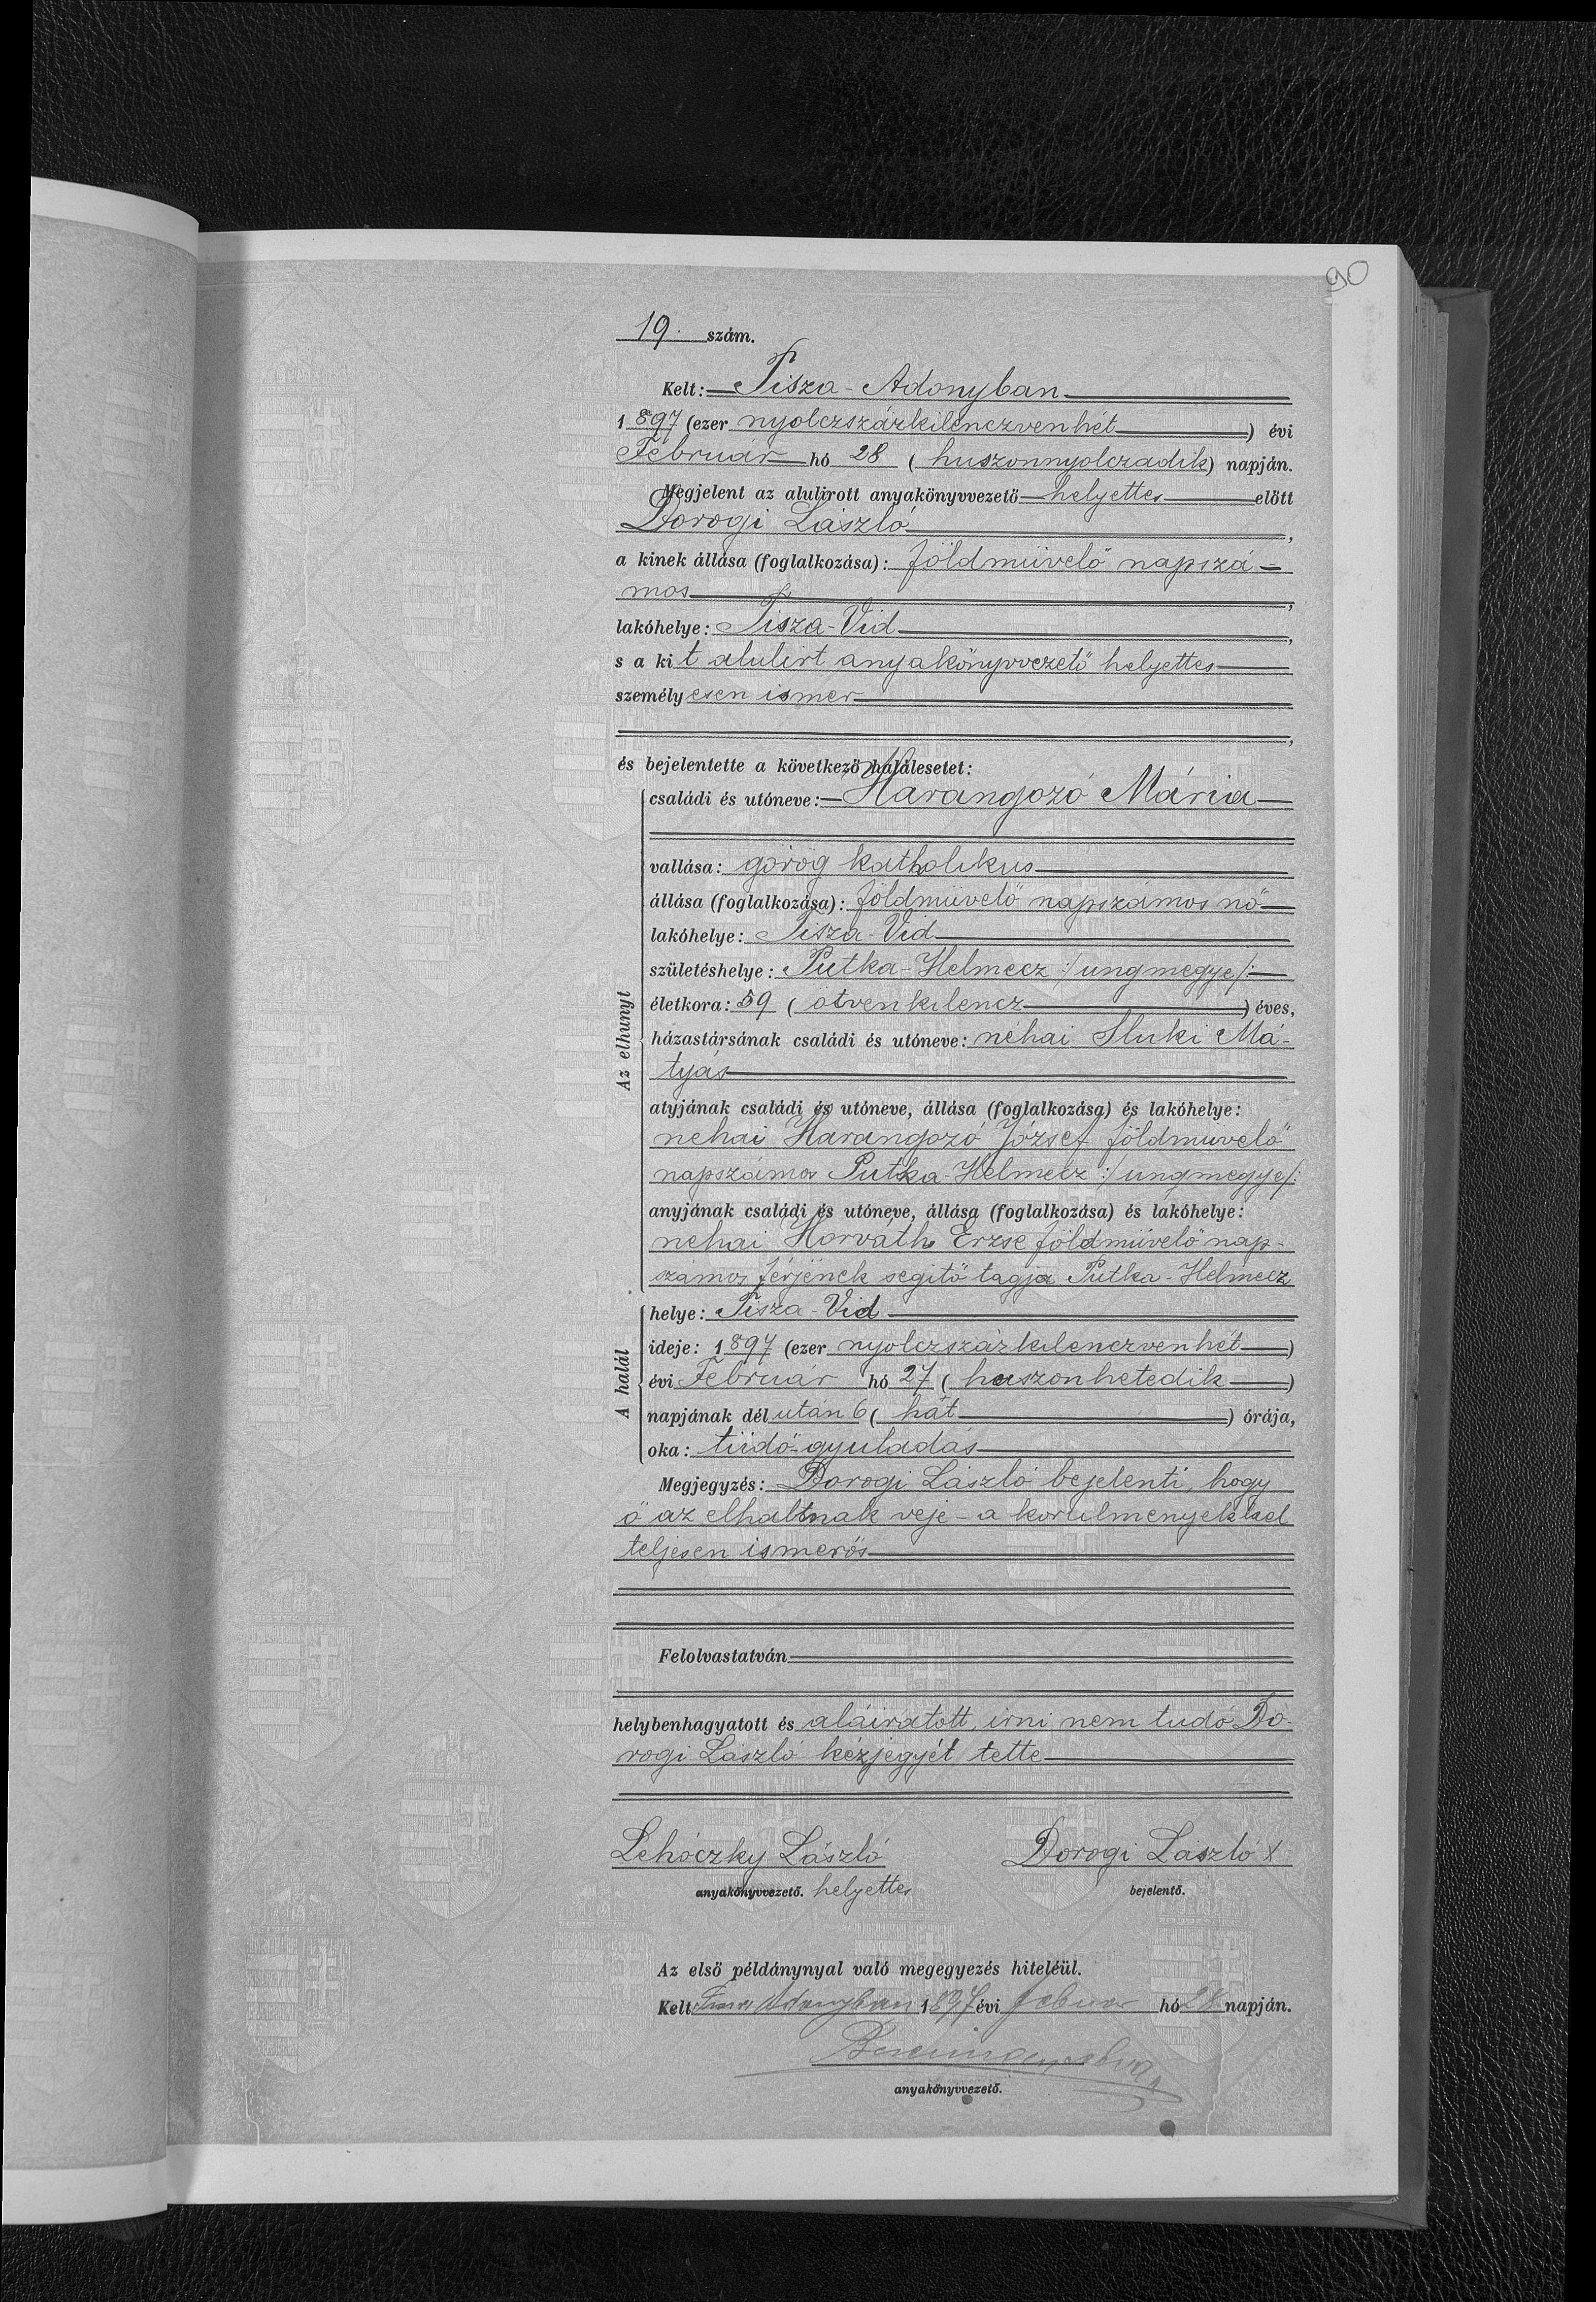 90
19. szám.
Kelt: Tisza-Adonyban
1897 (ezer nyolczszázkilenczvenhét) évi
Február hó 28 (huszonnyolczadik) napján.
Megjelent az alulirott anyakönyvvezető helyettes előtt
Dorogi László,
a kinek állása (foglalkozása): földmüvelő napszá-
mos,
lakóhelye: Tisza-Vid,
s a kit alulirt anyakönyvvezető helyettes
személyesen ismer
,
és bejelentette a következő halálesetet:
Az elhunyt
családi és utóneve: Harangozó Mária
vallása: görög katholikus
állása (foglalkozása): földmüvelő napszámos nő
lakóhelye: Tisza-Vid
születéshelye: Putka-Helmecz :/ungmegye/:
életkora: 59 (ötvenkilencz) éves,
házastársának családi és utóneve: néhai Sluki Má-
tyás
atyjának családi és utóneve, állása (foglalkozása) és lakóhelye:
nehai Harangozó József földmüvelő
napszámos Putka-Helmecz :/ungmegye/:
anyjának családi és utóneve, állása (foglalkozása) és lakóhelye:
nehai Horváth Erzse földmüvelő nap-
számos férjének segitő tagja Putka-Helmecz
A halál
helye: Tisza-Vid
ideje: 1897 (ezer nyolczszázkilenczvenhét)
évi Február hó 27 (huszonhetedik)
napjának délután 6 (hat) órája,
oka: tüdő-gyuladás
Megjegyzés: Dorogi László bejelenti, hogy
ő az elhaltnak veje - a körülményekkel
teljesen ismerős
Felolvastatván
helybenhagyatott és aláiratott, irni nem tudó Do-
rogi László kézjegyét tette
Lehóczky László Dorogi László X
anyakönyvvezető. helyettes bejelentő.
Az első példánynyal való megegyezés hiteléül.
Kelt Tisza Adonyban 1897 évi februar hó 28 napján.
anyakönyvvezető.